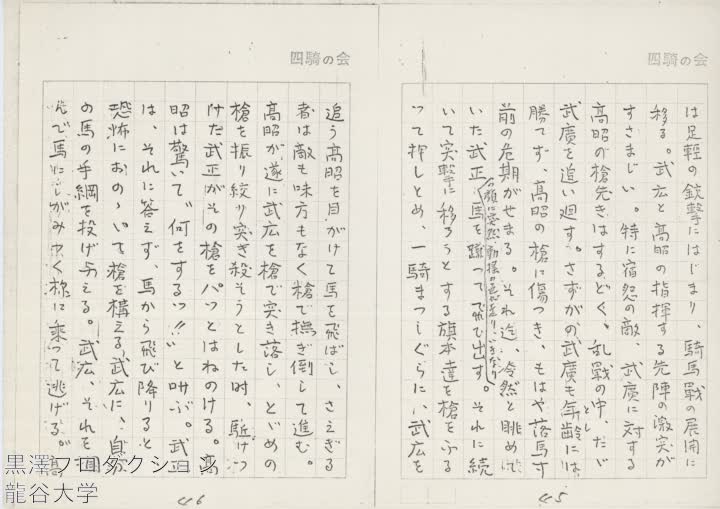 四騎の会
は足軽の銃撃にはじまり、騎馬戦の展開に
移る。武広と高昭の指揮する先陣の激突が
すさまじい。特に宿怨の敵、武廣に対する
高昭の槍先きはするどく。乱戦の中、たゞ
武廣を追い廻す。さすがの武廣も年齢には
とし
勝てず、高昭の槍に傷つき、もはや落馬寸
前の危期がせまる。それ迄、冷然と眺めて
いた武正
馬を蹴って飛び出す。それに続
いて突撃に移ろうとする旗本達を槍をふる
って押しとめ、一騎まっしぐらに、武広を
45
四騎の会
追う高昭を目がけて馬を飛ばし、さえぎる
者は敵も味方もなく槍で撫ぎ倒して進む。
高昭が、遂に武広を槍で突き落し、とどめの
槍を振り絞り突き殺そうとした時、駈けつ
けた武正がその槍をパッとはねのける。高
昭は驚いて〝何をするッ!!〟と叫ぶ。武正
は、それに答えず、馬から飛び降りると
恐怖におのゝいて槍を構える武広に、自分
の馬の手綱を投げ与える。武広、それを掴
んで馬にしがみつく様に乗って逃げる。高
46
黒澤プロダクション
龍谷大学